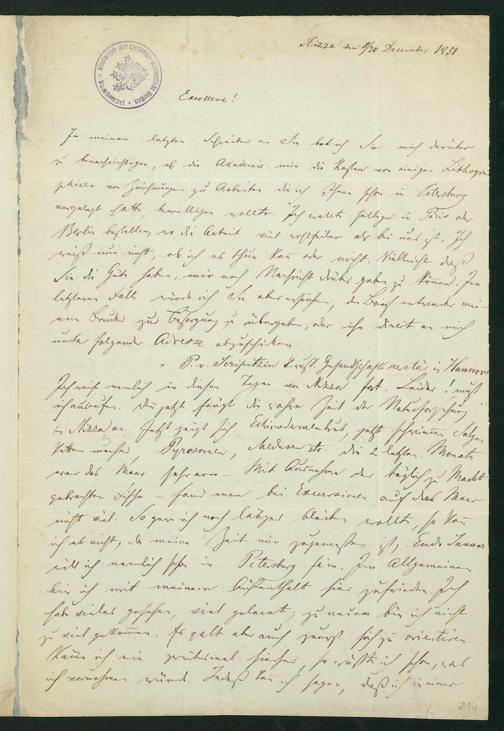 Nizza den 8/20 December 1858
Excellenz!
In meinem letzten Schreiben an Sie bat ich Sie mich darüber
zu benachrichtigen, ob die Akademie mir die Kosten von einigen Lithogra-
phien von Zeichnungen zu Arbeiten die ich Ihnen schon in Petersburg
vorgelegt hatte, bewilligen wollte. Ich wollte selbige in Paris oder
Berlin bestellen, wo die Arbeit viel wohlfeiler als bei uns ist. Ich
weiß nun nicht, ob ich es thun kan oder nicht. Vielleicht
Sie die Güte haben, mir noch Nachricht geben zu können. Im
letzteren Fall würde ich Sie aber ersuchen, den Brief entweder mei-
nem Bruder zur Besorgung zu übergeben, oder ihn direct an mich
unter folgender Adresse abzuschicken
P. v. k. russ. Gesandtschafts in Hannover
Ich reise nemlich in diesen Tagen von Nizza fort. Leider! muß
ich ausrufen. Den jetzt fängt die wahre Zeit der Naturforschung
in Nizza an. Jetzt zeigt sich jetzt schwimmen Salpen
Pyrosomen, Medusen etc. Die 2 letzten Monate
war das Meer . Mit Ausnahme der täglich zu Markt
gebrachten Fische – fand man bei Excursionen auf das Meer
nicht viel. So gern ich noch länger bleiben wollte, so kan
ich es nicht, da meine Zeit mir zugemessen ist. Ende Januar
will ich nemlich schon in Petersburg sein. Im Allgemeinen
bin ich mit meinem Aufenthalt hier zufrieden. Ich
habe vieles gesehen, viel gelernt; zu neuem bin ich nicht
zu viel gekommen. Es galt aber auch sich zu orientiren.
Käme ich ein zweitesmal hierher, so wüßte ich schon, was
ich vornehmen würde. Indeß kan ich sagen, daß ich in einer
214